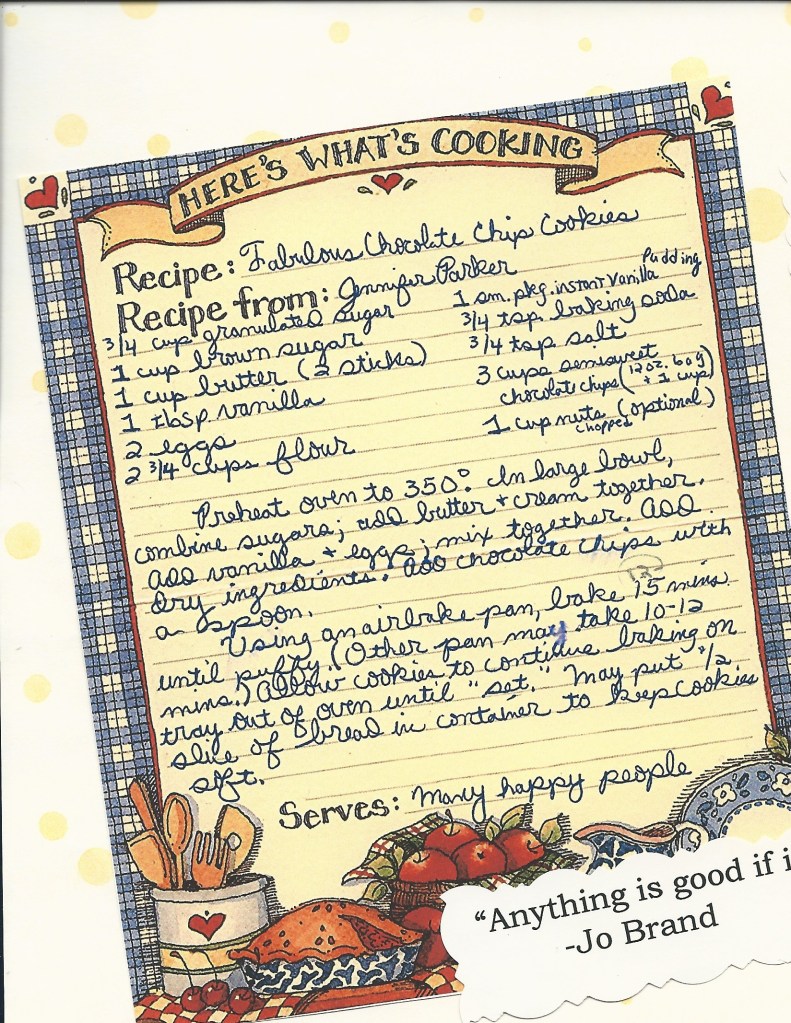 HERE'S WHAT'S COOKING
Recipe: Fabulous Chocolate Chip Cookies
Recipe from: Jennifer Parker
3/4 cup granulated sugar
1 cup brown sugar
1 cup butter (2 sticks)
1 tbsp. vanilla
2 eggs
2 3/4 cups flour
1 sm. pkg. instant vanilla pudding
3/4 tsp. baking soda
3/4 tsp salt
3 cups semisweet
chocolate chips (12 oz. bag
+ 1 cup)
1 cup nuts (optional)
chopped
Preheat oven to 350°. In large bowl,
combine sugars; add butter + cream together.
Add vanilla + eggs; mix together. Add
dry ingredients. Add chocolate chips with
a spoon.
12
Using an airbake pan, bake 15 mins.
until puffy. (Other pan may take 10-12
mins.) Allow cookies to continue baking on
tray out of oven until "set." May put 1/2
slice of bread in container to keep cookies
soft.
Serves: Many happy people
"Anything is good if i
-Jo Brand